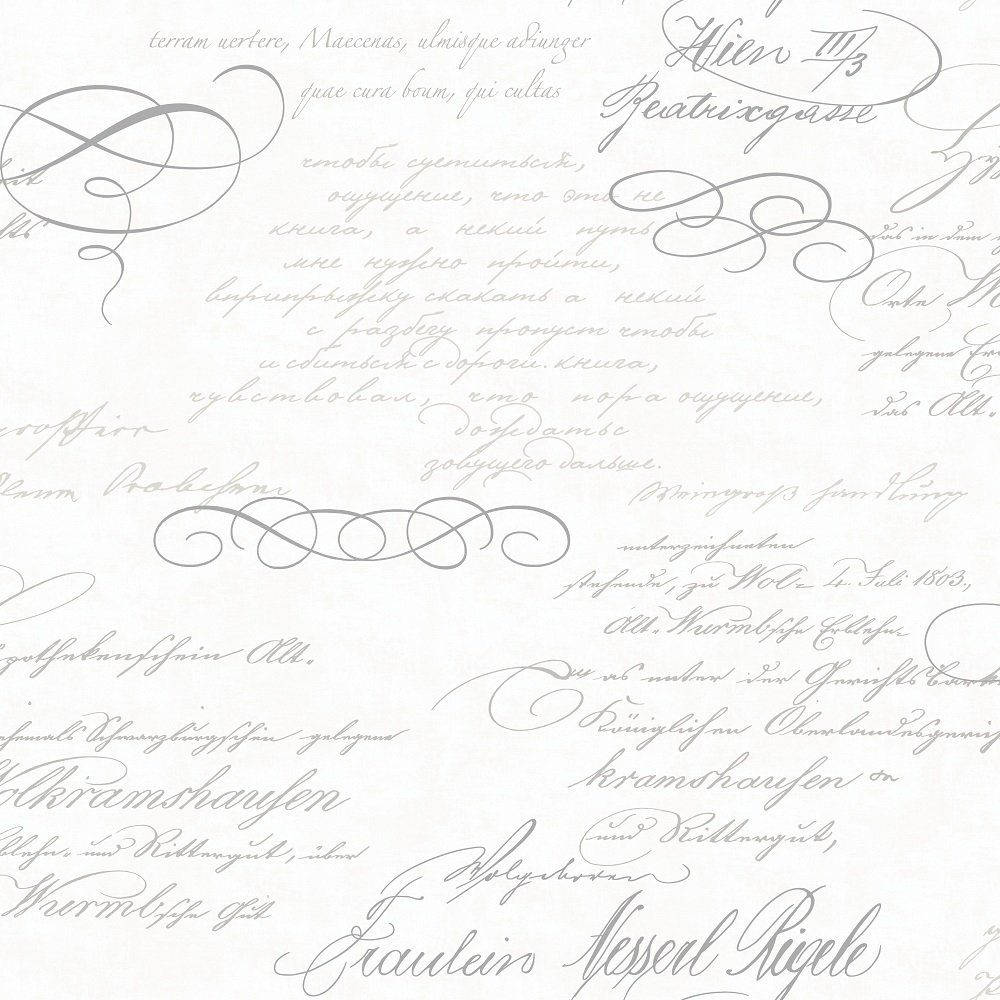 terram vertere, Maecenas, ulmisque adiunger
quae cura boum, qui cultas
Wien III/3
Beatrixgasse
чтобы суетиться,
ощущение, что это не
книга, а некий путь
мне нужно пройти,
вприпрыжку скакать а некий
с разбегу пропуст чтобы
и сбиться с дороги. книга,
чувствовал, что пора ощущение,
дождатьс
зовущего дальше.
das in dem
Orte
gelegene
das Allt.
Weingroß handlung
unterzeichneten
stehende, zu Wol= 4. Juli 1803.,
Allt. Wurmb'sche Erblehn=
as unter der Gerichtsbark
Königlichen Oberlandesgerich
kramshausen
und Rittergut,
pothekenschein Allt.
ehemals Schwarzburgschein gelegene
Wolkramshausen
blehn= und Rittergut, über
Wurmb'sche Gut
Wolgeboren
Fräulein Nesserl Rigele